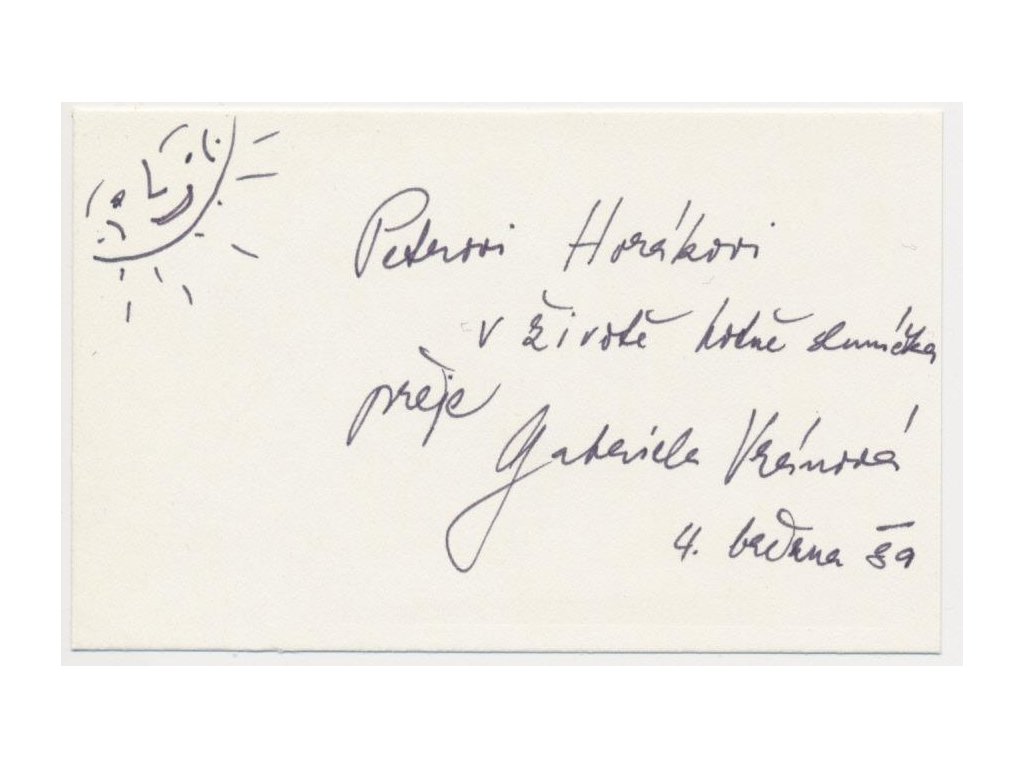 Peterovi Horákovi
v životě hodně sluníčka
přeje
Gabriela Vránová
4. března 89